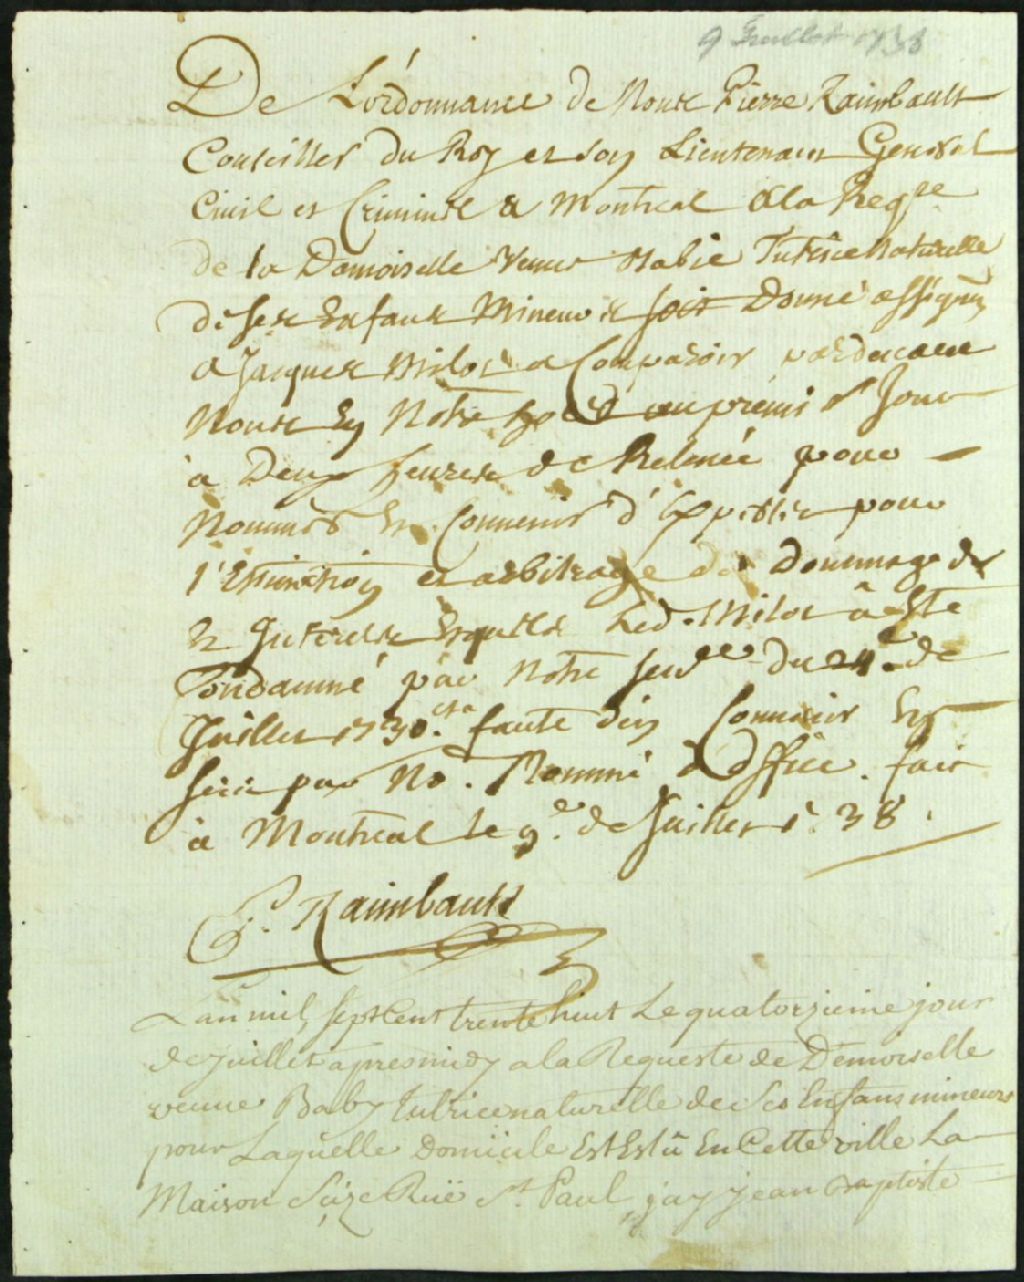 9 Juillet 1738
De L'ordonnance de Nous Pierre Raimbault
Conseiller du Roy et son Lieutenant General
Civil et Criminel a Montreal A la Reqte
de la Damoiselle Veuve Babie Tutrice Naturelle
de ses Enfans Mineurs soit Donné assignn
a Jacques Milot a Comparoir pardevant
Nous En Notre au premier Jour
à Deux heures de Relevée pour
Nommer et Convenir d'Experts pour
l'Estimation et arbitrage des Dommages
et Interests Esquels Led. Milot à Esté
Condamné par Notre Sence du 24e de
Juillet 1730. faute d'en Convenir En
sera par No. Nommé d'Office. fait
à Montreal le 9e. de Juillet 1738.
P. Raimbault
L'an mil sept Cent trente huit Le quatorzieme jour
de juillet apres midy a la Requeste de Demoiselle
veuve Baby tutrice naturelle de Ses Enfans mineurs
pour Laquelle Domicile Est Eslû En Cette ville La
Maison Size Ruë St. Paul, j'ay jean Baptiste